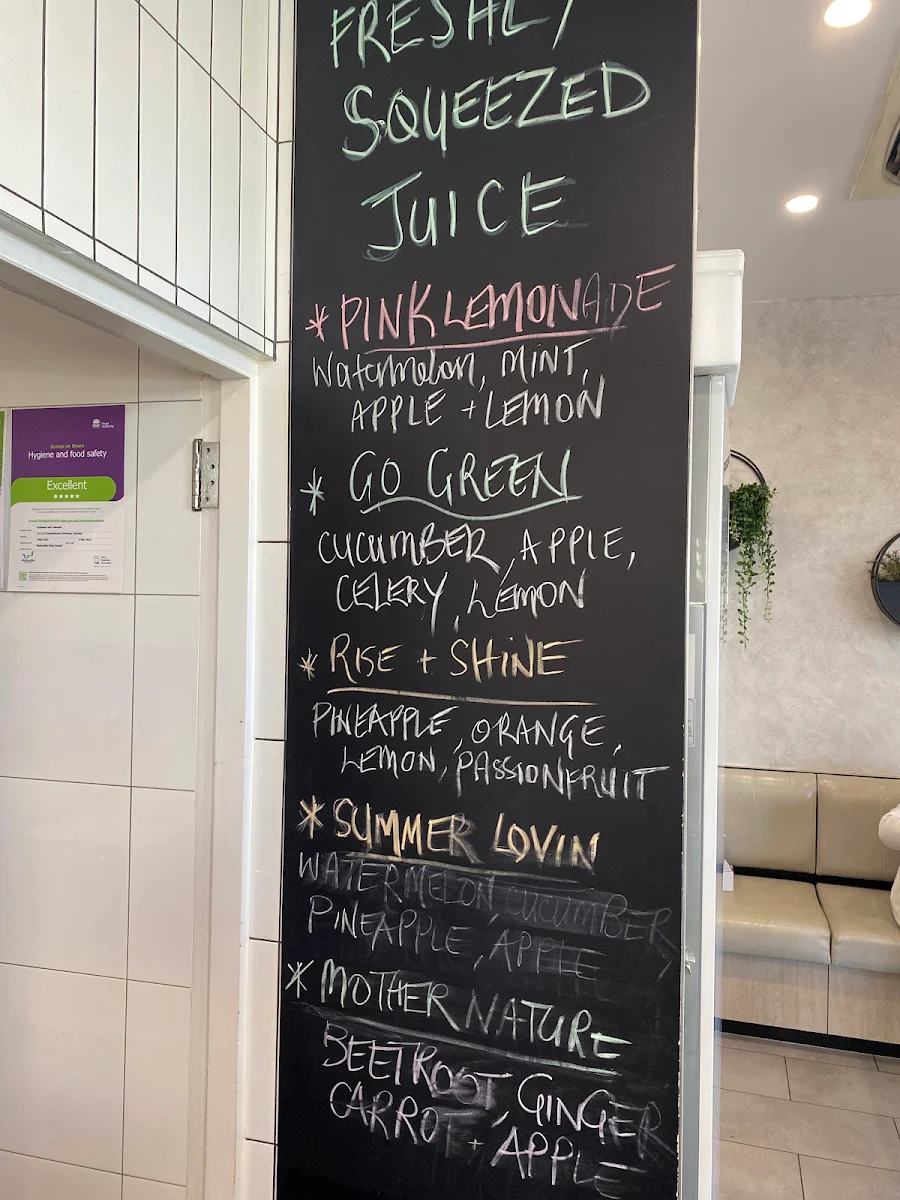 FRESHLY
SQUEEZED
JUICE
* PINK LEMONADE
Watermelon, MINT,
APPLE + LEMON
* GO GREEN
CUCUMBER, APPLE,
CELERY, LEMON
* RISE + SHINE
PINEAPPLE, ORANGE,
LEMON, PASSIONFRUIT
* SUMMER LOVIN
WATERMELON, CUCUMBER,
PINEAPPLE, APPLE
* MOTHER NATURE
BEETROOT, GINGER
CARROT + APPLE
Scores on Doors
Hygiene and food safety
Excellent